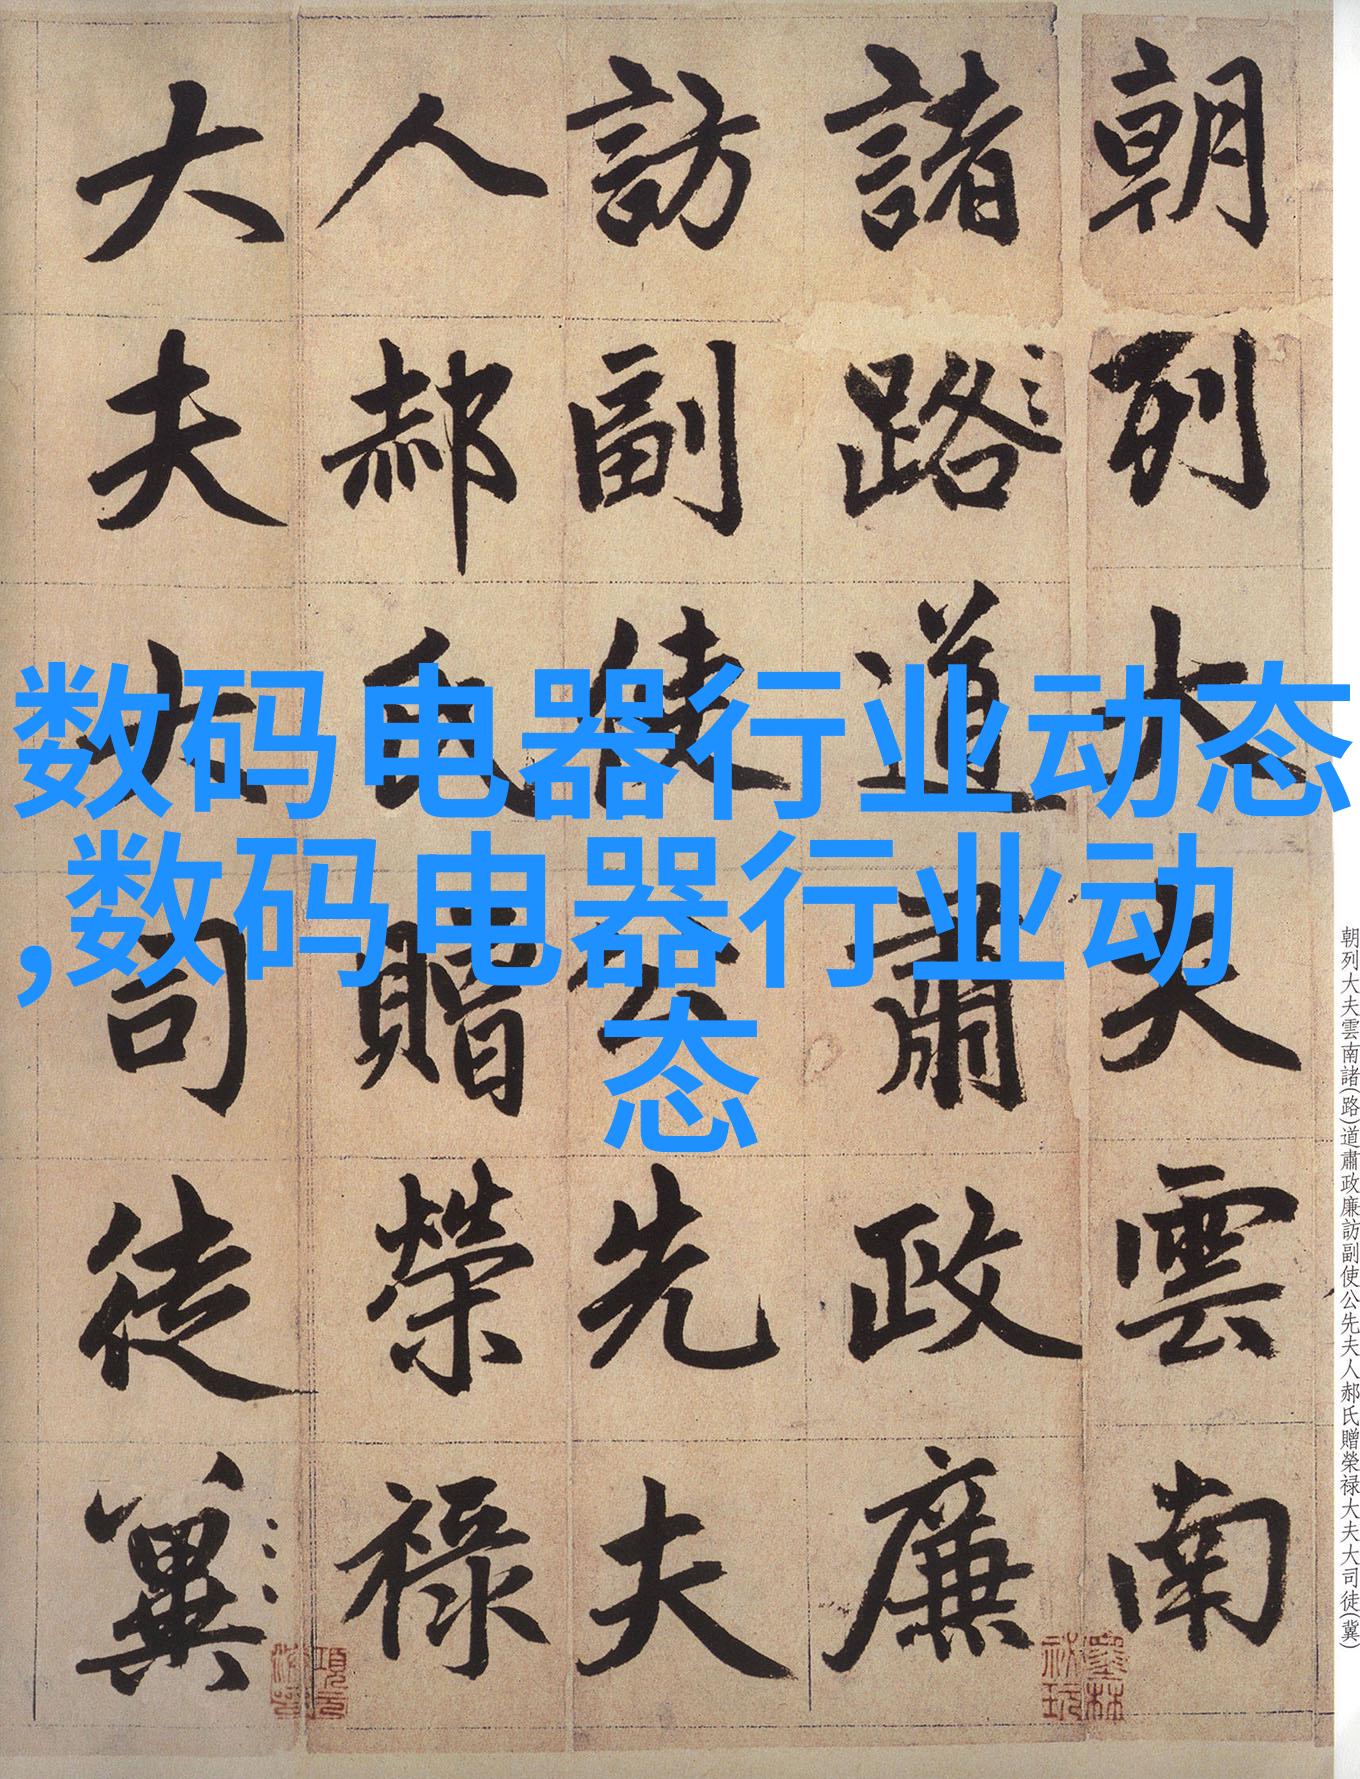 数码电器行业动态
,数码电器行业动
态
朝列大夫雲南
諸路道肅政廉
訪副使公先夫
人郝氏贈榮禄
大夫大司徒冀
朝列大夫雲南諸(路)道肅政廉訪副使公先夫人郝氏贈榮禄大夫大司徒(冀)
墨林
祕玩
項元
汴印